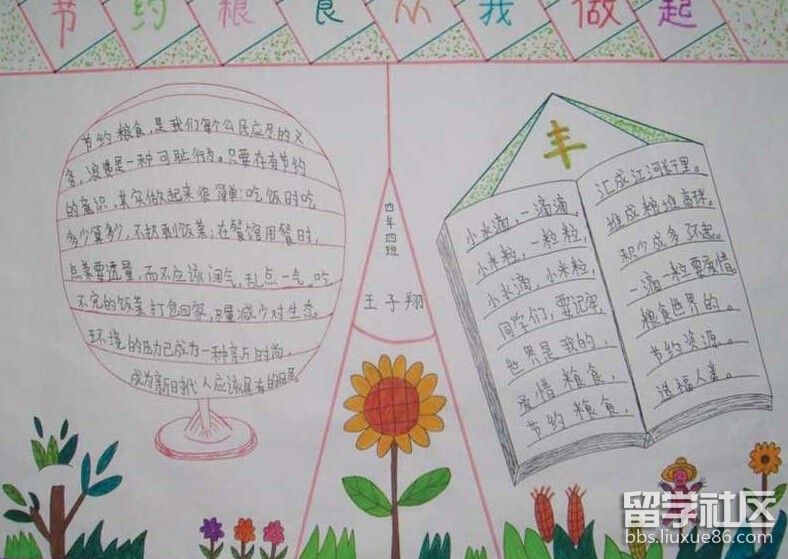 节约粮食从我做起
节约粮食,是我们每个公民应尽的义
务,浪费是一种可耻行为。只要存有节约
的意识,其实做起来很简单:吃饭时吃
多少算多少,不扔剩饭菜;在餐馆用餐时,
点菜要适量,而不应该阔气,乱点一气。吃
不完的饭菜打包回家,尽量减少对生态
环境的压力已成为一种时尚,
成为新时代人应该具有的
四年四班
王子翔
丰
小水滴,一滴滴,
小米粒,一粒粒,
小水滴,小米粒,
同学们,要记牢,
世界是我的,
爱惜粮食,
节约粮食,
汇成江河行千里。
堆成粮堆高
积少成多了不起。
一滴一粒要爱惜。
粮食世界的。
节约资源。
造福人类。
留学社区
bbs.liuxue86.com